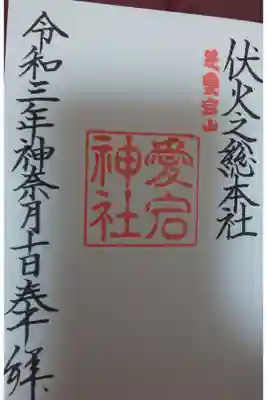 伏火之総本社
愛宕山
愛宕
神社
令和三年神奈月十日奉拝